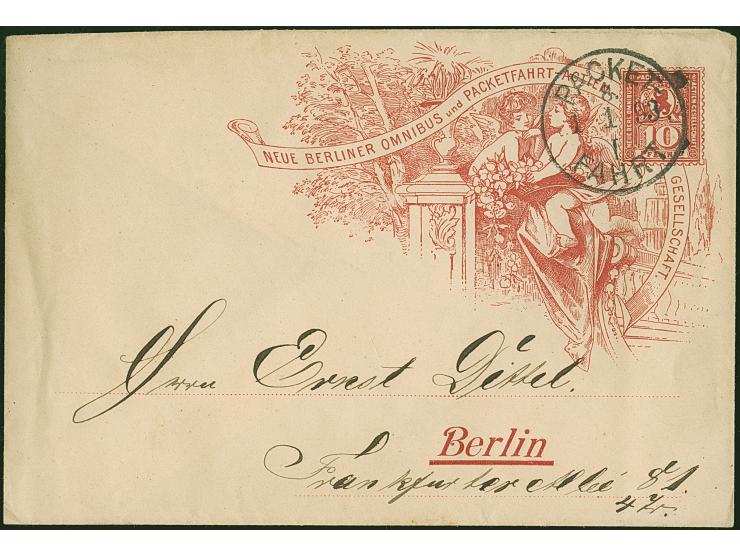 NEUE BERLINER OMNIBUS und PACKETFAHRT-ACTIEN
GESELLSCHAFT
PACKET
FAHRT
10
Herrn Ernst Dittel.
Berlin
Frankfurter Allée 81.
4 Tr.